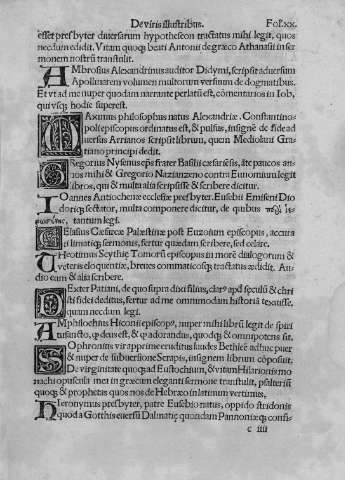 De viris illustribus. Fol. xx.
esset presbyter diuersarum hypotheseon tractatus mihi legit, quos
necdum edidit. Vitam quoq; beati Antonii de græco Athanasii in ser
monem nostrũ transtulit.
AMbrosius Alexandrinus auditor Didymi, scripsit aduersum
Apollinarem volumen multorum versuum de dogmatibus.
Et vt ad me nuper quodam narrante perlatũ est, cõmentarios in Iob,
qui vsq; hodie superest.
MAximus philosophus natus Alexandriæ, Constantino-
poli episcopus ordinatus est, & pulsus, insignẽ de fide ad
uersus Arrianos scripsit librum, quem Mediolani Gra
tiano principi dedit.
GRegorius Nysenus eps frater Basilii cæsariẽsis, ãte paucos an
nos mihi & Gregorio Nazianzeno contra Eunomium legit
libros, qui & multa alia scripsisse & scribere dicitur.
IOannes Antiochenæ ecclesiæ presbyter, Eusebii Emiseni Dio
doriq; sectator, multa componere dicitur, de quibus περὶ ἱε-
ρωσύνης, tantum legi.
GElasius Cæsareæ Palæstinæ post Euzoium episcopus, accura
ti limatiq; sermonis, fertur quædam scribere, sed celare.
THeotimus Scythiæ Tomorũ episcopus in morẽ dialogorum &
veteris eloquentiæ, breues commaticosq; tractatus ædidit. Au-
dio eum & alia scribere.
DExter Patiani, de quo supra dixi filius, clarꝰ apd̃ seculũ & chri
sti fidei deditus, fertur ad me omnimodam historiã texuisse,
quam necdum legi.
AMphilochius Hiconii episcopꝰ, nuper mihi librũ legit de spiri
tusancto, q̃ deus sit, & q̃ adorandus, quodq; & omnipotens sit.
SOphronius vir apprime eruditus laudes Bethleẽ adhuc puer
& nuper de subuersione Serapis, insignem librum cõposuit.
De virginitate quoq; ad Eustochium, & vitam Hilarionis mo
nachi opuscula mei in græcum eleganti sermone transtulit, psalteriũ
quoq; & prophetas quos nos de Hebræo in latinum vertimus.
HIeronymus presbyter, patre Eusebio natus, oppido stridonis
quod a Gotthis euersũ Dalmatiæ quondam Pannoniæq; confi-
c iiii